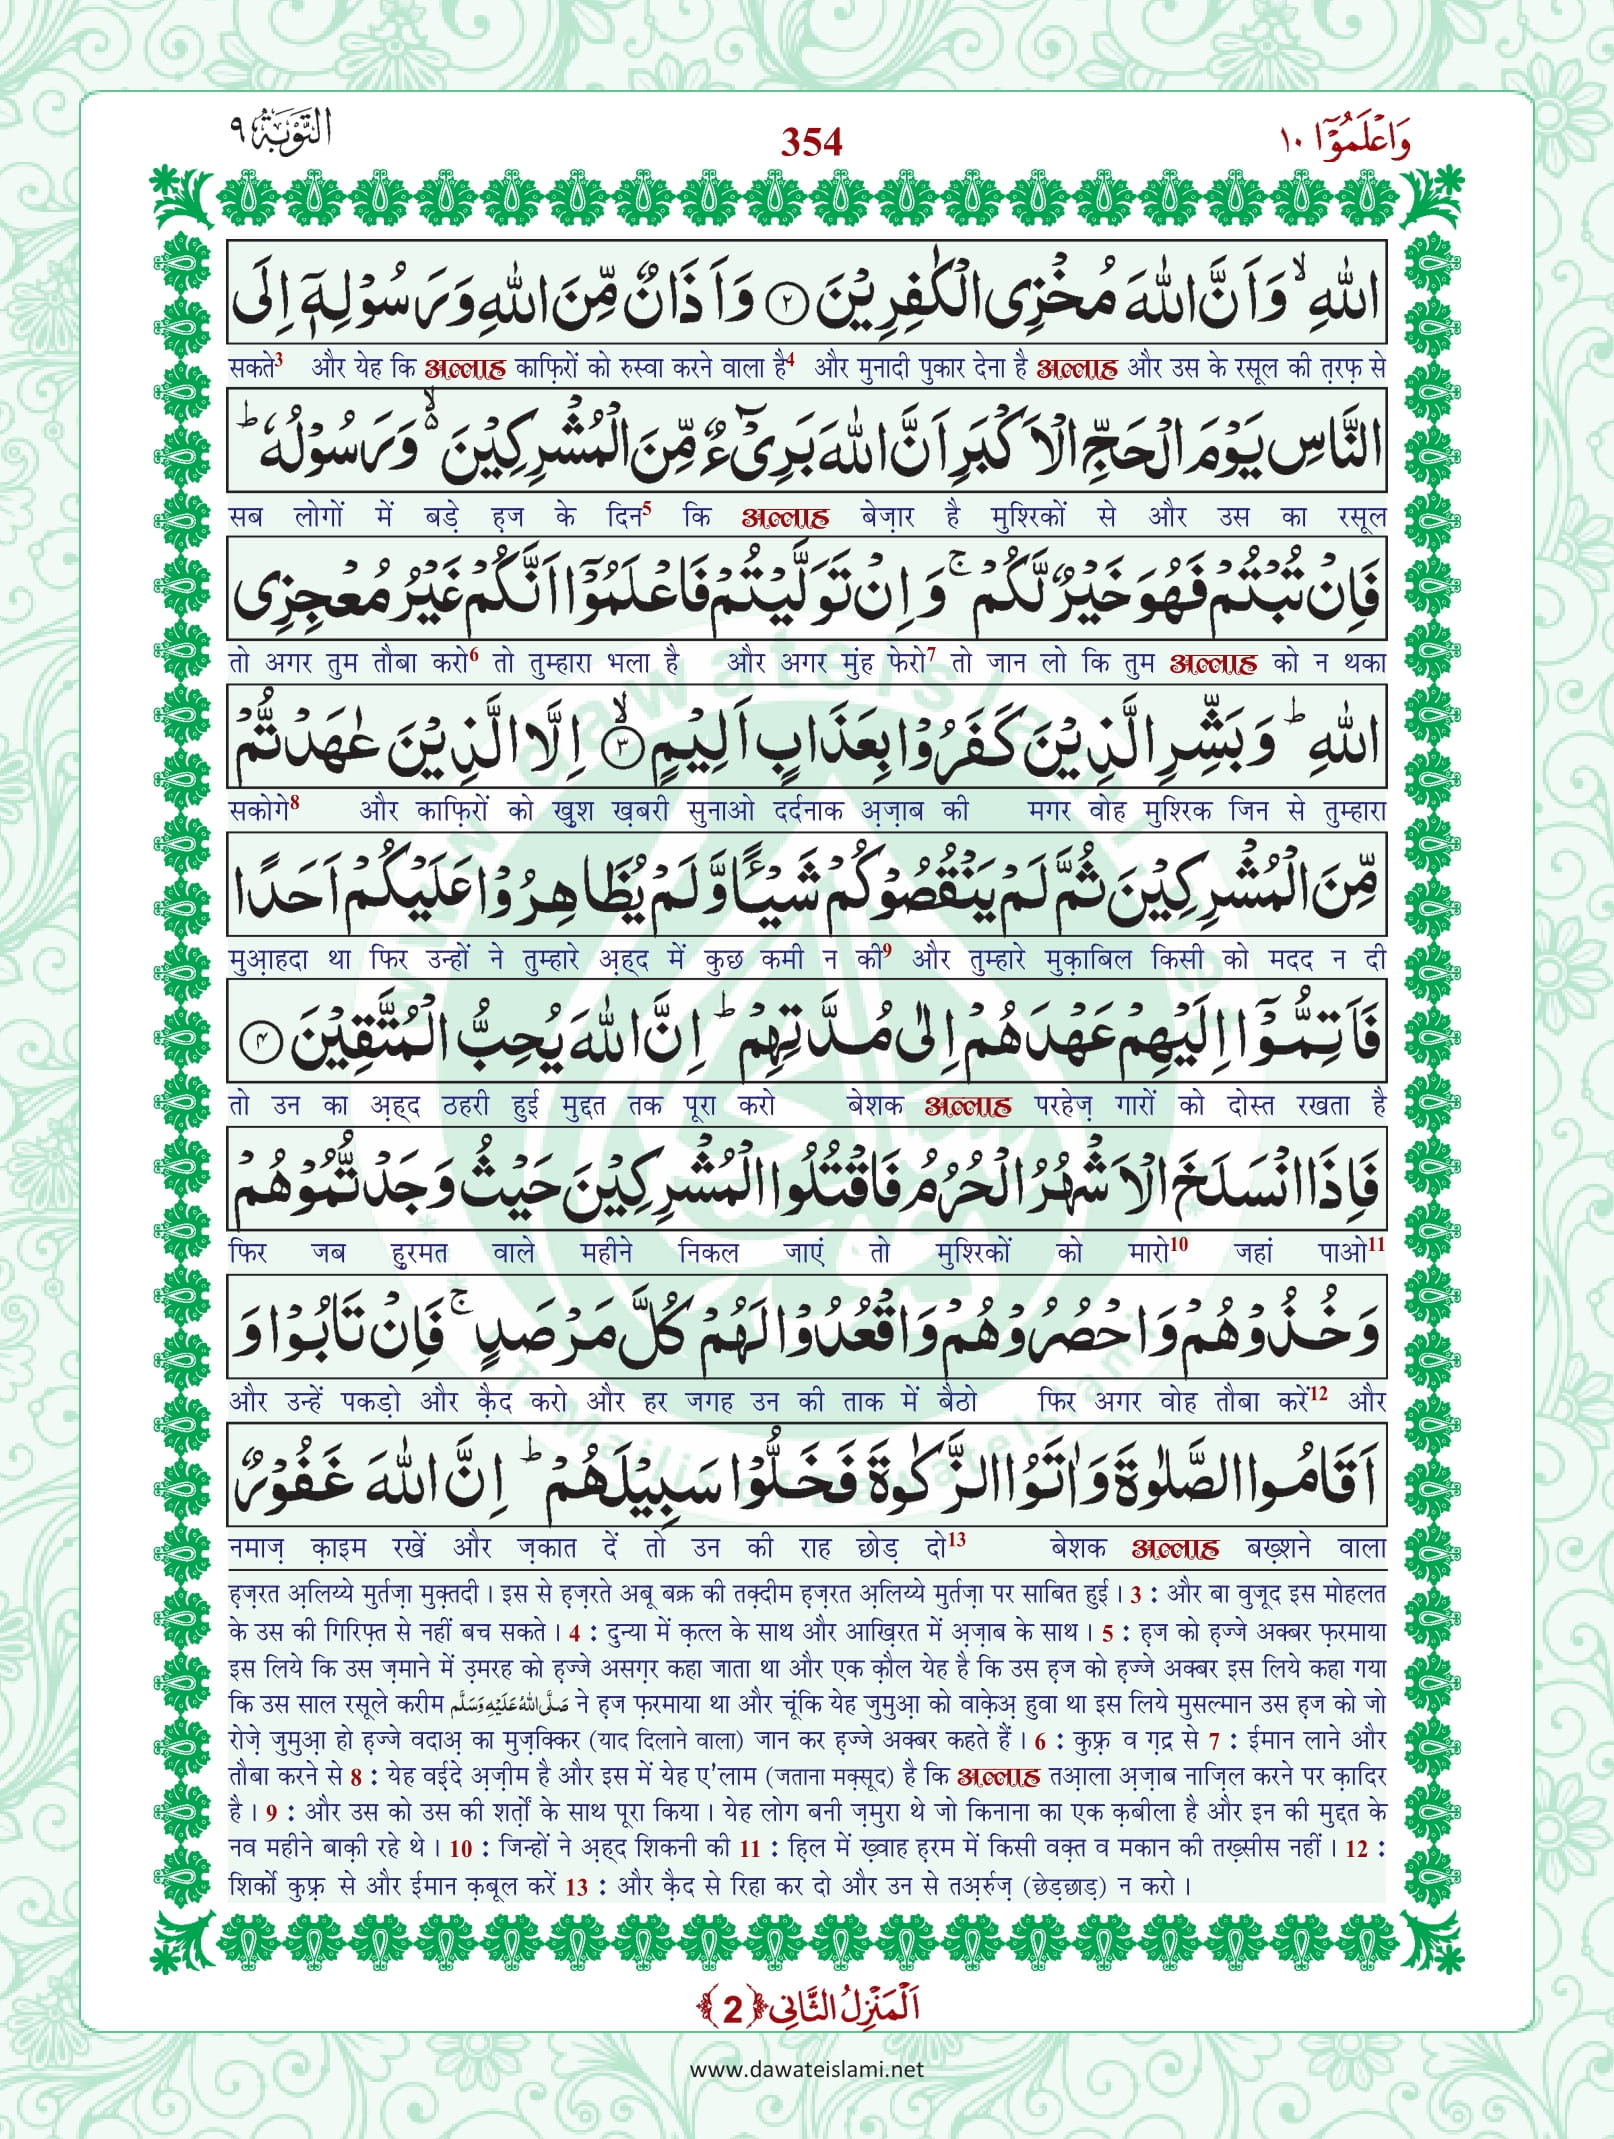 وَاعْلَمُوْٓا ١٠
354
التَّوْبَة ٩
اللّٰهِ ۙ وَ اَنَّ اللّٰهَ مُخْزِی الْكٰفِرِیْنَ ۝۲ وَ اَذَانٌ مِّنَ اللّٰهِ وَ رَسُوْلِهٖۤ اِلَى
सकते3 और येह कि अल्लाह काफ़िरों को रुस्वा करने वाला है4 और मुनादी पुकार देना है अल्लाह और उस के रसूल की त़रफ़ से
النَّاسِ یَوْمَ الْحَجِّ الْاَكْبَرِ اَنَّ اللّٰهَ بَرِیْٓءٌ مِّنَ الْمُشْرِكِیْنَ ۙ۬ وَ رَسُوْلُهٗ ؕ
सब लोगों में बड़े ह़ज के दिन5 कि अल्लाह बेज़ार है मुश्रिकों से और उस का रसूल
فَاِنْ تُبْتُمْ فَهُوَ خَیْرٌ لَّكُمْ ۚ وَ اِنْ تَوَلَّیْتُمْ فَاعْلَمُوْۤا اَنَّكُمْ غَیْرُ مُعْجِزِی
तो अगर तुम तौबा करो6 तो तुम्हारा भला है और अगर मुंह फेरो7 तो जान लो कि तुम अल्लाह को न थका
اللّٰهِ ؕ وَ بَشِّرِ الَّذِیْنَ كَفَرُوْا بِعَذَابٍ اَلِیْمٍ ۝۳ۙ اِلَّا الَّذِیْنَ عٰهَدْتُّمْ
सकोगे8 और काफ़िरों को ख़ुश ख़बरी सुनाओ दर्दनाक अ़ज़ाब की मगर वोह मुश्रिक जिन से तुम्हारा
مِّنَ الْمُشْرِكِیْنَ ثُمَّ لَمْ یَنْقُصُوْكُمْ شَیْـًٔا وَّ لَمْ یُظَاهِرُوْا عَلَیْكُمْ اَحَدًا
मुआ़हदा था फिर उन्हों ने तुम्हारे अ़ह्द में कुछ कमी न की9 और तुम्हारे मुक़ाबिल किसी को मदद न दी
فَاَتِمُّوْۤا اِلَیْهِمْ عَهْدَهُمْ اِلٰى مُدَّتِهِمْ ؕ اِنَّ اللّٰهَ یُحِبُّ الْمُتَّقِیْنَ ۝۴
तो उन का अ़ह्द ठहरी हुई मुद्दत तक पूरा करो बेशक अल्लाह परहेज़ गारों को दोस्त रखता है
فَاِذَا انْسَلَخَ الْاَشْهُرُ الْحُرُمُ فَاقْتُلُوا الْمُشْرِكِیْنَ حَیْثُ وَجَدْتُّمُوْهُمْ
फिर जब हु़रमत वाले महीने निकल जाएं तो मुश्रिकों को मारो10 जहां पाओ11
وَ خُذُوْهُمْ وَ احْصُرُوْهُمْ وَ اقْعُدُوْا لَهُمْ كُلَّ مَرْصَدٍ ۚ فَاِنْ تَابُوْا وَ
और उन्हें पकड़ो और क़ैद करो और हर जगह उन की ताक में बैठो फिर अगर वोह तौबा करें12 और
اَقَامُوا الصَّلٰوةَ وَ اٰتَوُا الزَّكٰوةَ فَخَلُّوْا سَبِیْلَهُمْ ؕ اِنَّ اللّٰهَ غَفُوْرٌ
नमाज़ क़ाइम रखें और ज़कात दें तो उन की राह छोड़ दो13 बेशक अल्लाह बख़्शने वाला
ह़ज़रत अ़लिय्ये मुर्तज़ा मुक़्तदी । इस से ह़ज़रते अबू बक्र की तक़्दीम ह़ज़रत अ़लिय्ये मुर्तज़ा पर साबित हुई । 3 : और बा वुजूद इस मोहलत
के उस की गिरिफ़्त से नहीं बच सकते । 4 : दुन्या में क़त्ल के साथ और आख़िरत में अ़ज़ाब के साथ । 5 : ह़ज को ह़ज्जे अक्बर फ़रमाया
इस लिये कि उस ज़माने में उ़मरह को ह़ज्जे असग़र कहा जाता था और एक क़ौल येह है कि उस ह़ज को ह़ज्जे अक्बर इस लिये कहा गया
कि उस साल रसूले करीम صَلَّى اللّٰهُ عَلَيْهِ وَسَلَّم ने ह़ज फ़रमाया था और चूंकि येह जुमुआ़ को वाक़ेअ़ हुवा था इस लिये मुसल्मान उस ह़ज को जो
रोज़े जुमुआ़ हो ह़ज्जे वदाअ़ का मुज़क्किर (याद दिलाने वाला) जान कर ह़ज्जे अक्बर कहते हैं । 6 : कुफ़्र व ग़द्र से 7 : ईमान लाने और
तौबा करने से 8 : येह वई़दे अ़ज़ीम है और इस में येह ए'लाम (जताना मक़्सूद) है कि अल्लाह तआ़ला अ़ज़ाब नाज़िल करने पर क़ादिर
है । 9 : और उस को उस की शर्त़ों के साथ पूरा किया । येह लोग बनी ज़मुरा थे जो किनाना का एक क़बीला है और इन की मुद्दत के
नव महीने बाक़ी रहे थे । 10 : जिन्हों ने अ़ह्द शिकनी की 11 : ह़िल में ख़्वाह ह़रम में किसी वक़्त व मकान की तख़्सीस नहीं । 12 :
शिर्को कुफ़्र से और ईमान क़बूल करें 13 : और क़ैद से रिहा कर दो और उन से तअ़र्रुज़ (छेड़छाड़) न करो ।
اَلْمَنْزِلُ الثَّانِی ﴿2﴾
www.dawateislami.net